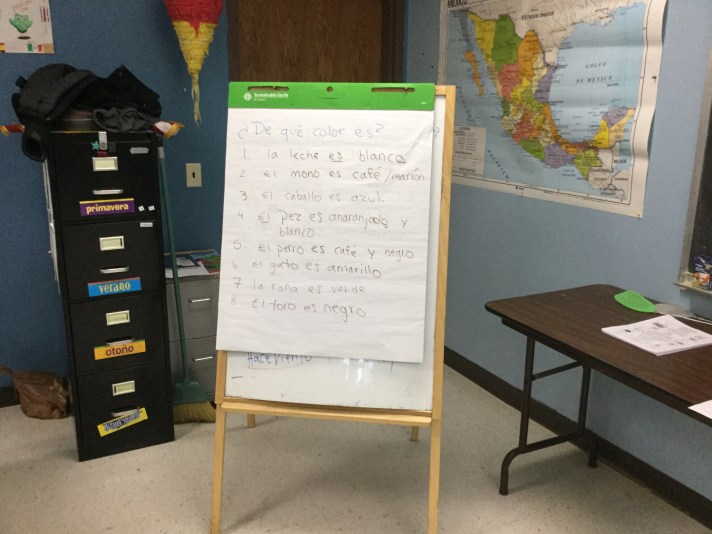 MEXICO
GOLFO
DE MEXICO
GUATEMALA
Sustainable Earth
¿De qué color es?
1 la leche es blanca
2 El mono es café/marrón
3 El caballo es azul.
4 El pez es anaranjado y
blanco
5 El perro es café y negro
6 El gato es amarillo
7 la rana es verde
8 El toro es negro
Hace viento
primavera
verano
otoño